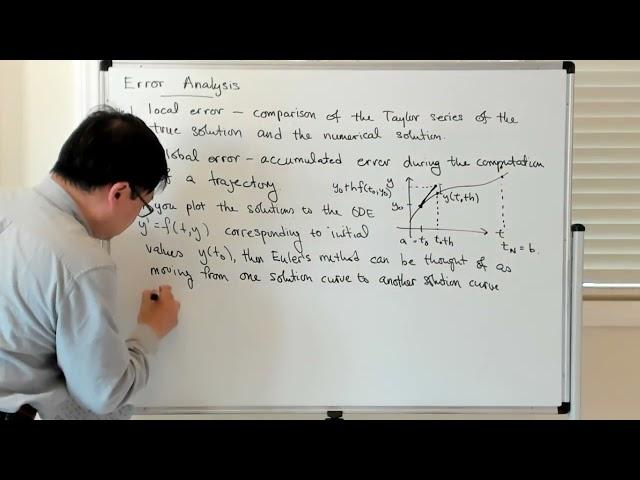 Error Analysis
local error – comparison of the Taylor series of the
true solution and the numerical solution.
global error – accumulated error during the computation
of a trajectory.
y
y₀+hf(t₀,y₀)
y₀
y(t₀+h)
you plot the solutions to the ODE
y' = f(t,y) corresponding to initial
a = t₀ t₀+h t
t_N = b.
values y(t₀), then Euler's method can be thought of as
moving from one solution curve to another solution curve